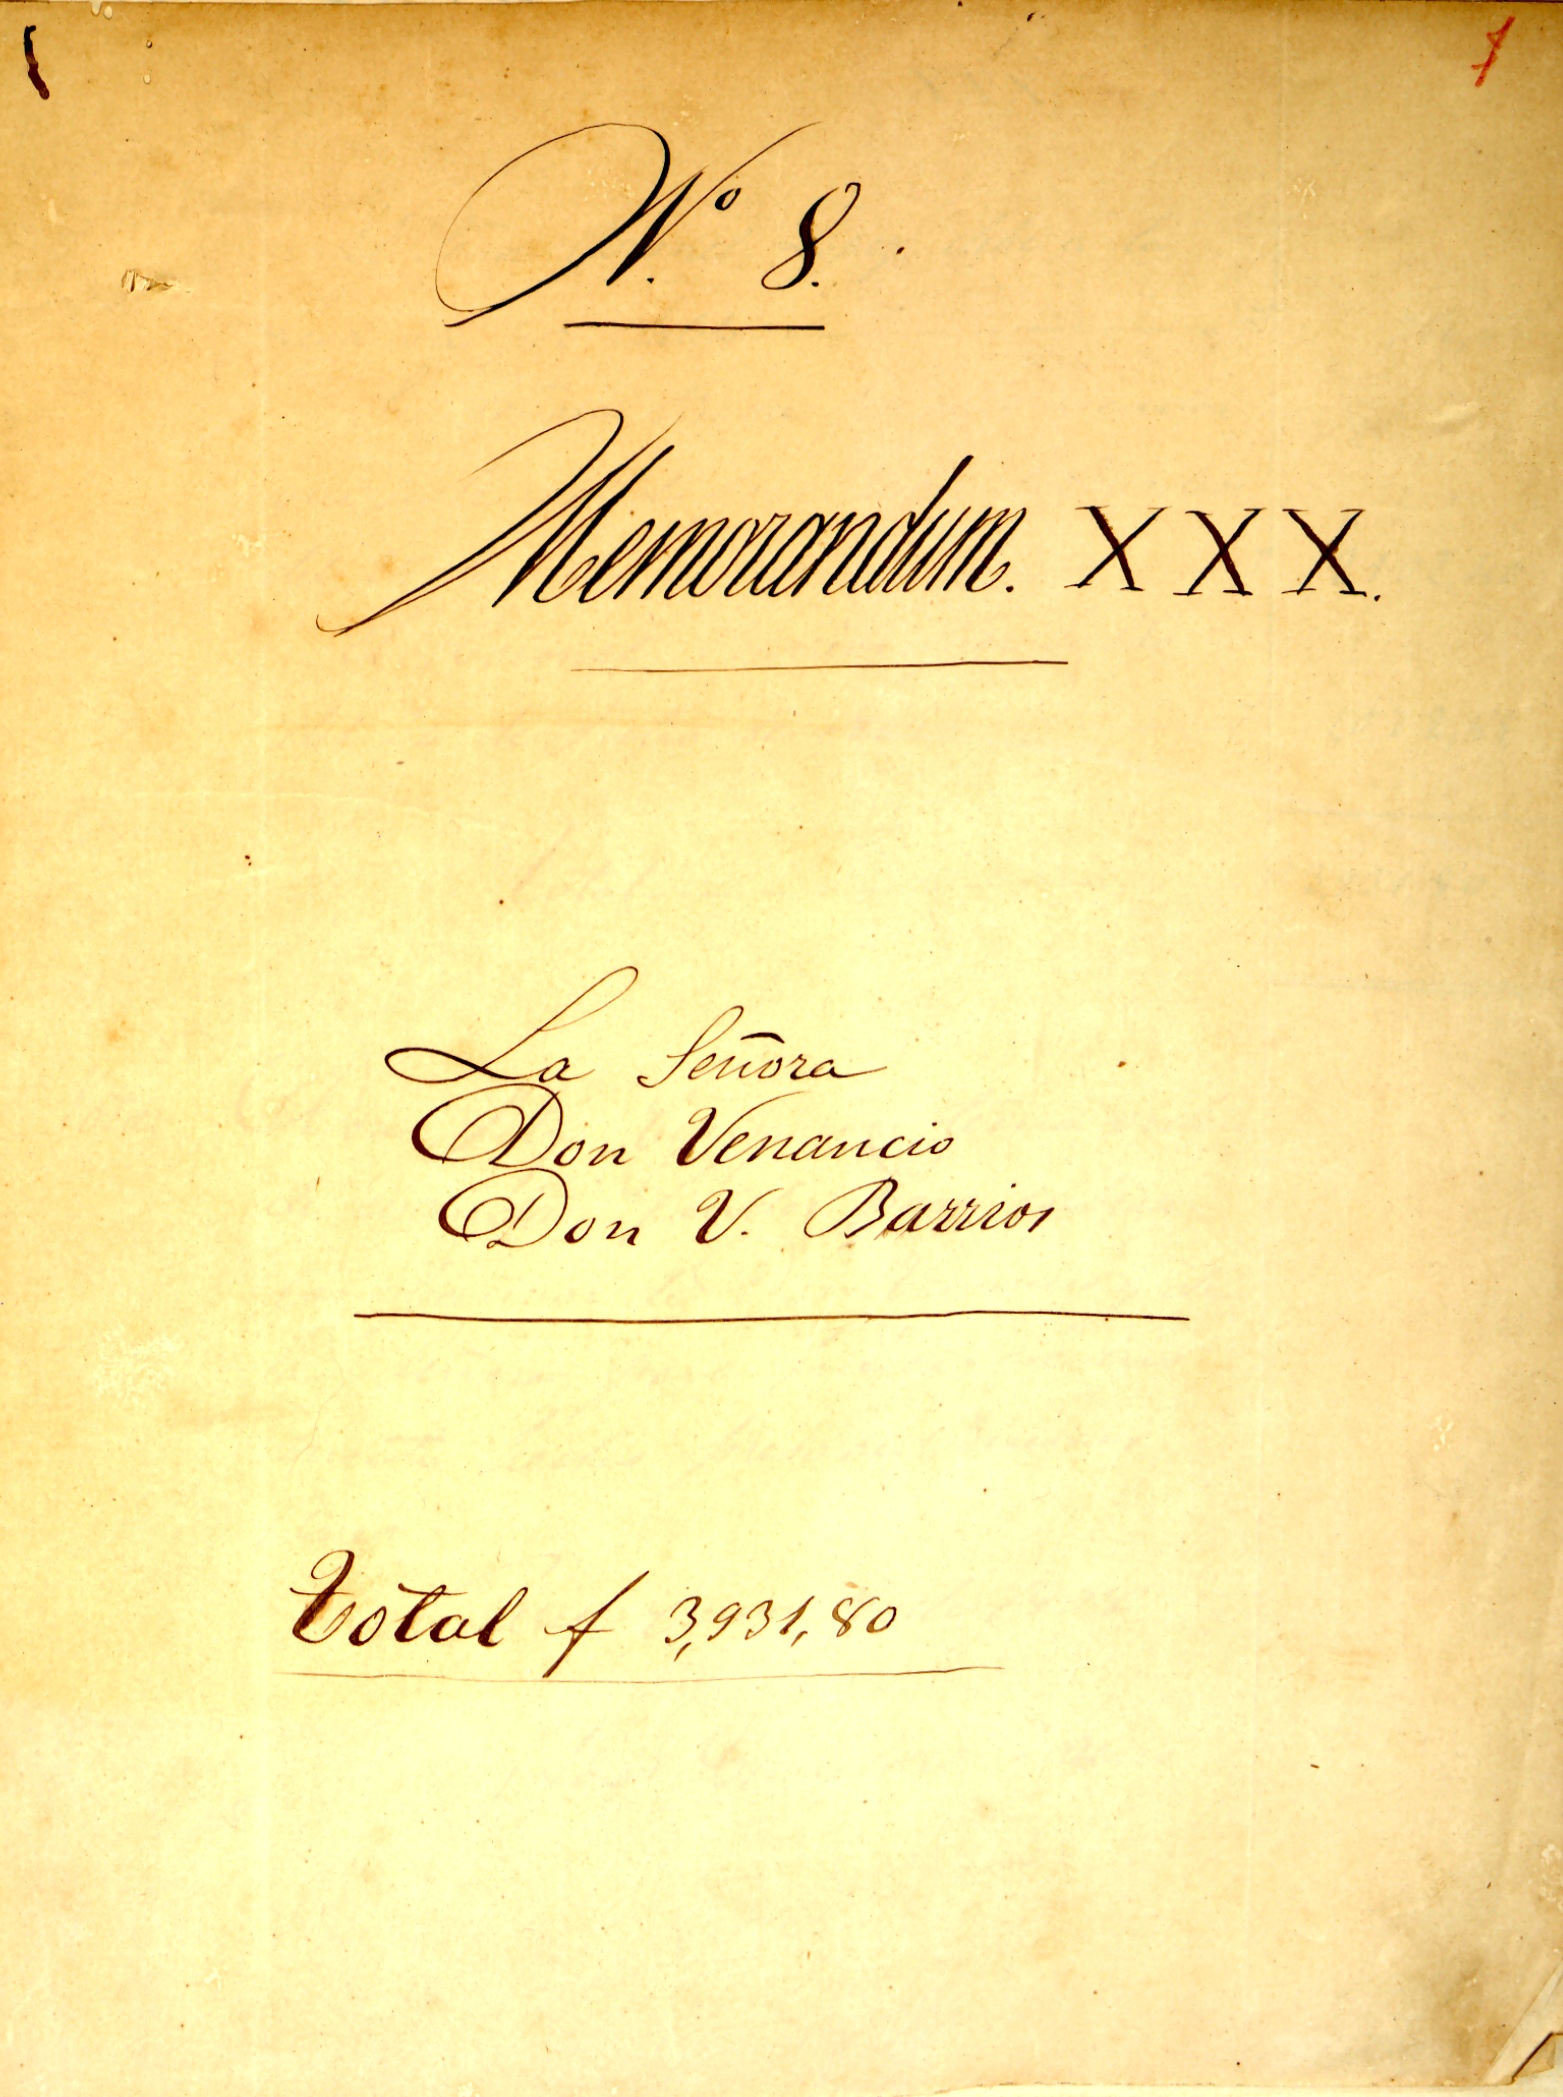 1
Nº 8.
Memorandum. XXX.
La Señora
Don Venancio
Don V. Barrios
Total f 3,931,80